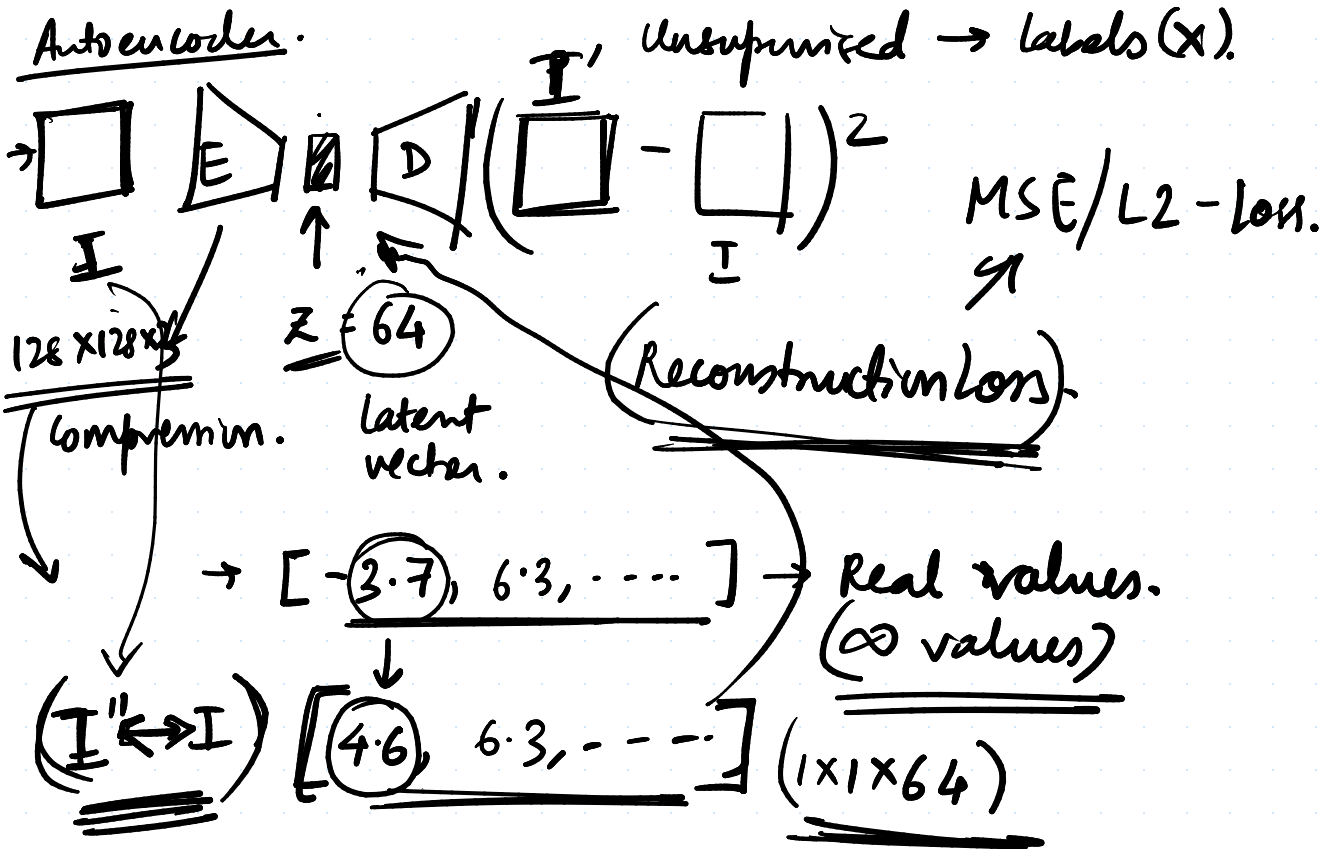 Autoencoder.
Unsupervised → labels(x).
I'
E
D
( - )2
I
I
MSE/L2-Loss.
128×128×3
z = 64
(Reconstruction Loss).
Compression.
latent
vector.
→ [-3.7, 6.3, ----- ] → Real values.
(∞ values)
(I" ↔ I)
[4.6, 6.3, ----- ]
(1×1×64)